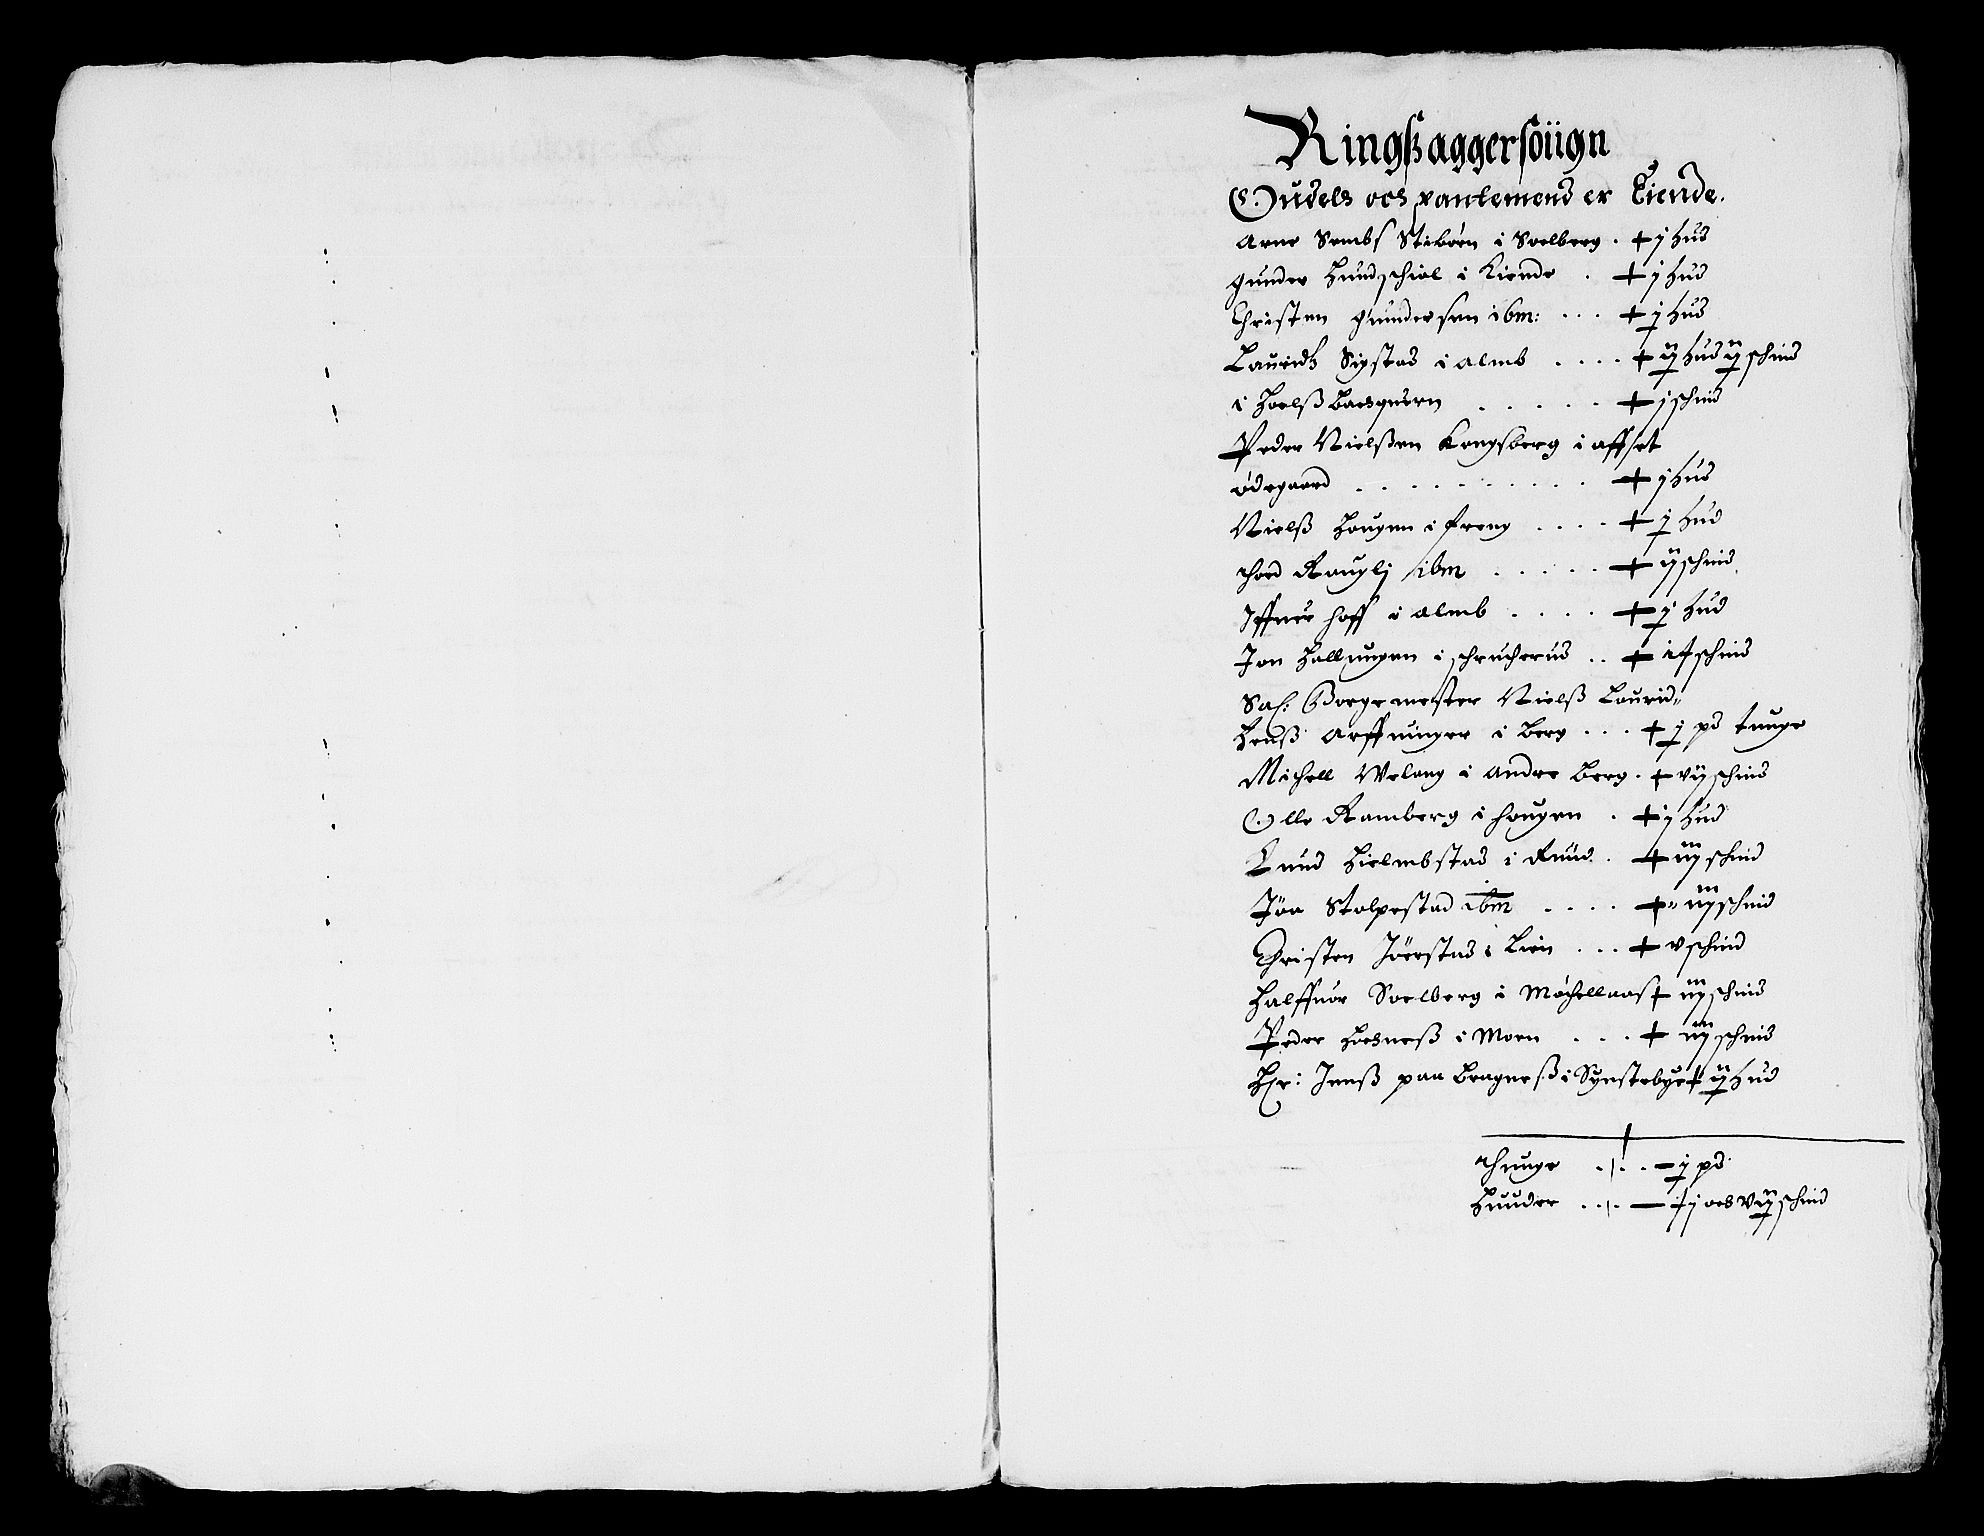 Ringßaggersoügn
Oudels och pantemend er Eiende.
Arne Sembs Stibørn i Soelberg . + j Hud
gunder Hundschiøl i Kiende . + j Hud
Christen gundersen ibm: . . . + j Hud
Lauridtz Sigstad i Almb . . . . + ij Hud ij schind
i Hoelß . . . . . + j schind
Peder Nielßen Kongsberg i affset
ødegaard . . . . . . . . . . + j Hud
Nielß Hougen i freng . . . . + j Hud
thord Rouglj ibm . . . . . + ij schind
Iffuer hoff i Almb . . . . + j Hud
Jon Hallungen i schrucherud . . + schind
Sal: Borgemester Nielß Laurid=
Henß Arffuinger i Berg . . . + j pd tunge
Michell Welang i Andre Berg . + vij schind
Olle Ramberg i hougen . + j Hud
Knud Hielmbstad i Ruud . + iij schind
Jøn Stolpestad ibm . . . . + iij schind
Christen Jøerstad i Lien . . . + v schind
Halffuor Soelberg i + iij schind
Peder Hoesneß i Moen . . . + iij schind
Her: Jenß paa Bragneß i Synstebye + ij Hud
thunge . . . . — j pd
Huuder . . . . — och vij schind